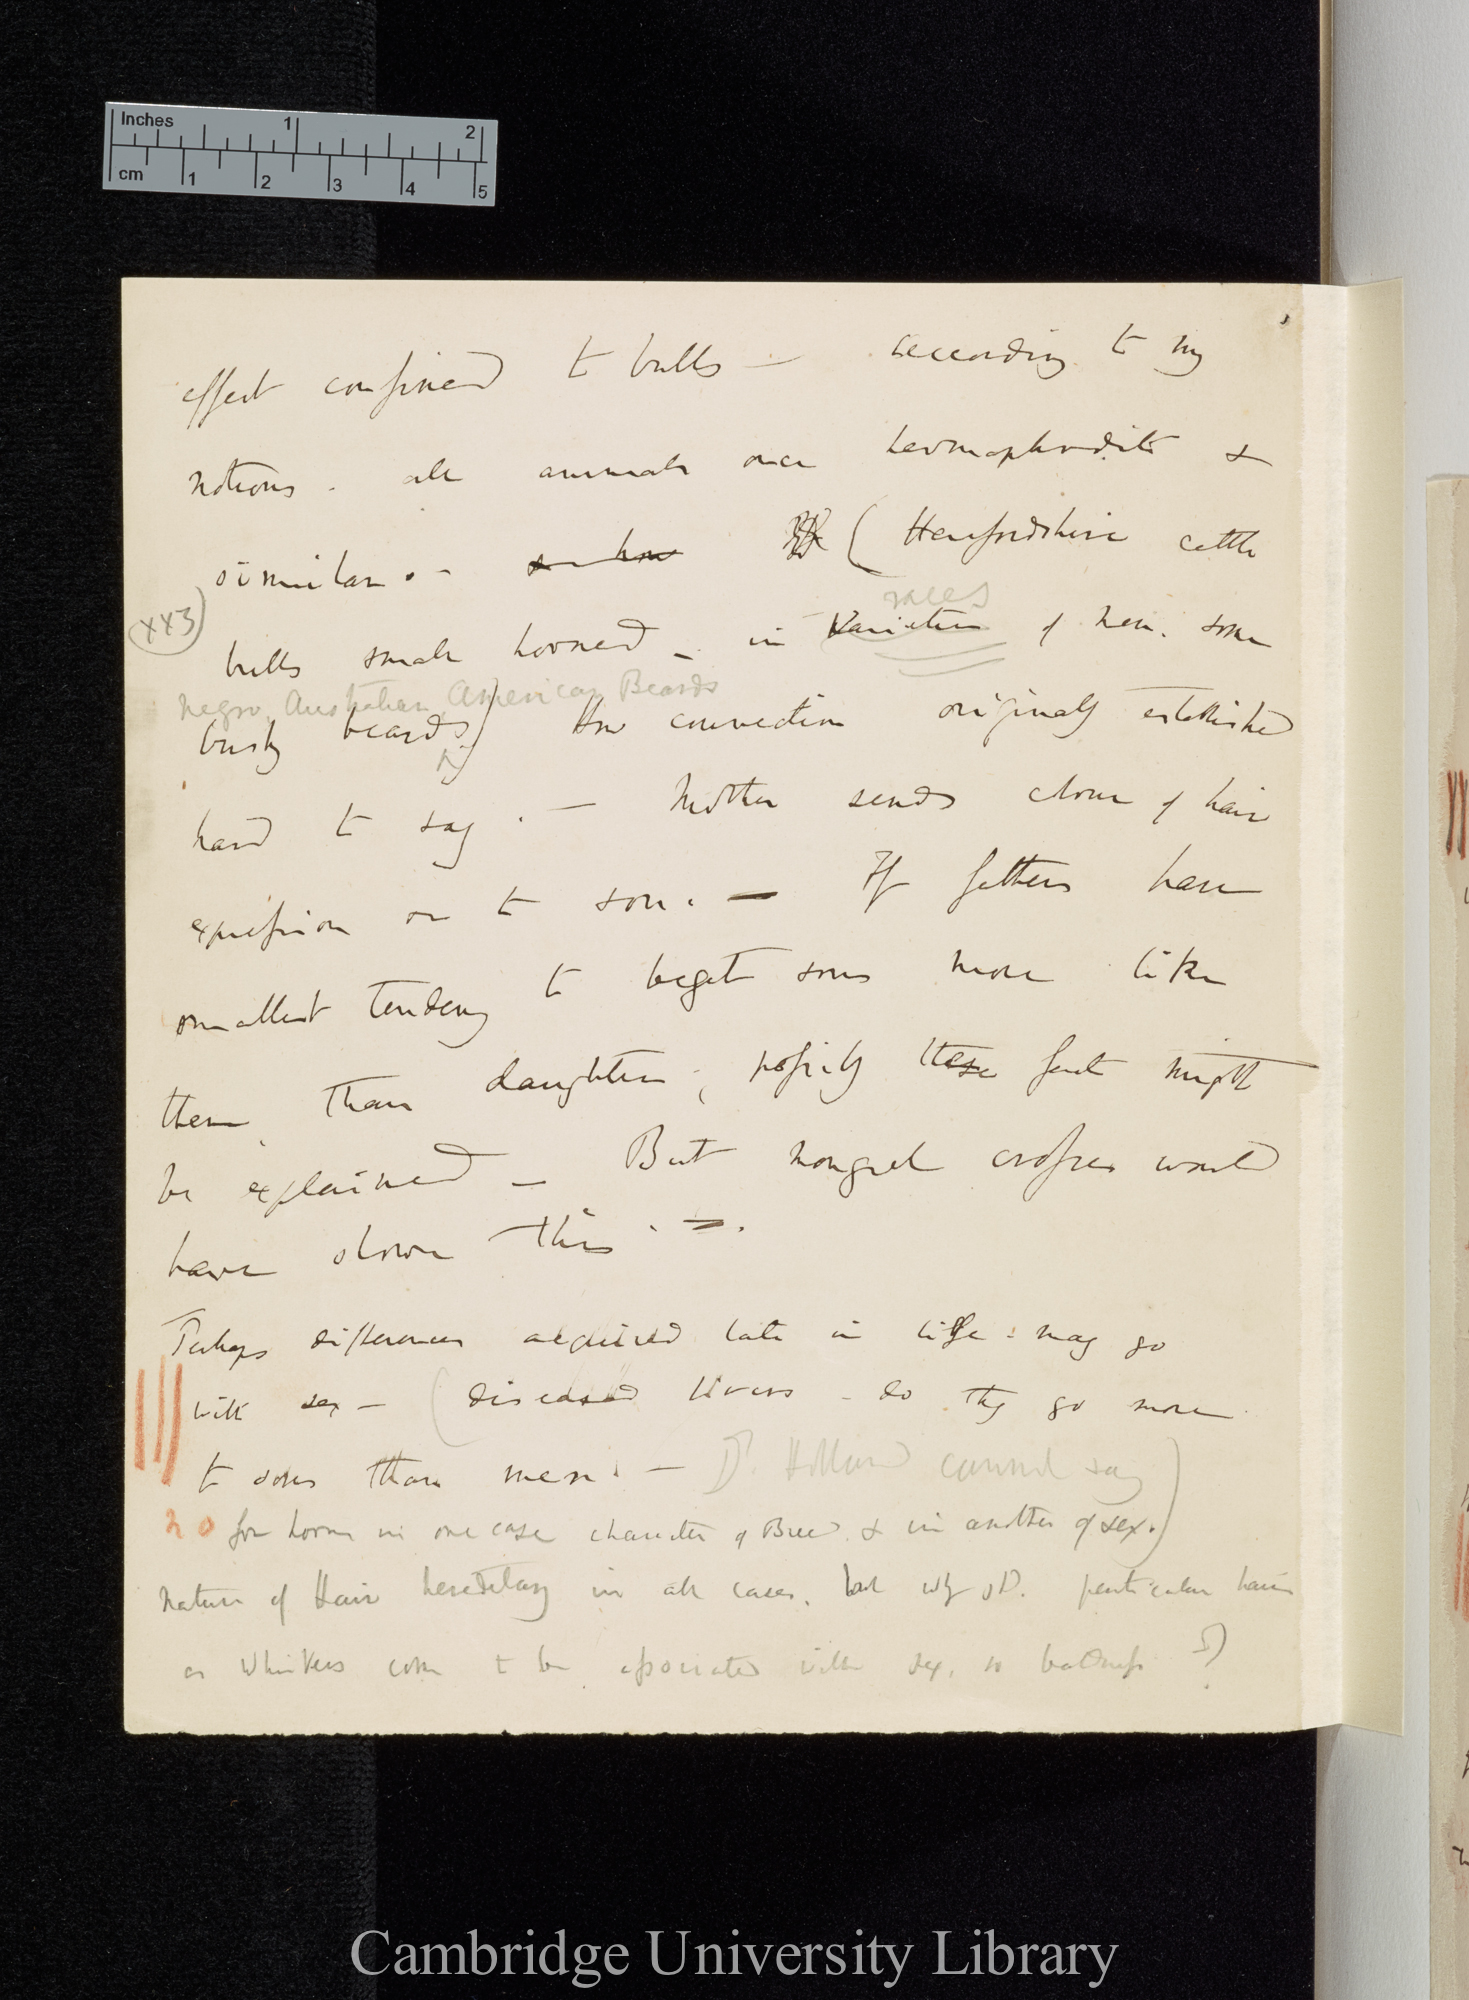 Inches 1 2
cm 1 2 3 4 5
effect confined to bulls — according to my
notions. all animals once hermaphrodite &
similar. — (Herefordshire cattle
races
(XX3)
bulls small horned — in varieties of men. some
negro, Australian American Beards
bushy beards) How connection originally established
hard to say. — Mother sends clone of hair
expression on to son. — If fathers have
smallest tendency to beget sons more like
them, than daughters; possibly these fact might
be explained — But mongrel crosses would
have shown this. —.
Perhaps differences acquired late in life. may go
with sex — (diseased livers — do they go more
to sons than men. — Dr. Holland cannot say)
no for horns in one case character of Breed & in another of sex.)
Nature of Hair hereditary in all cases. but why shd. particular hairs
as Whiskers come to be associated with sex, so baldness?)
Cambridge University Library